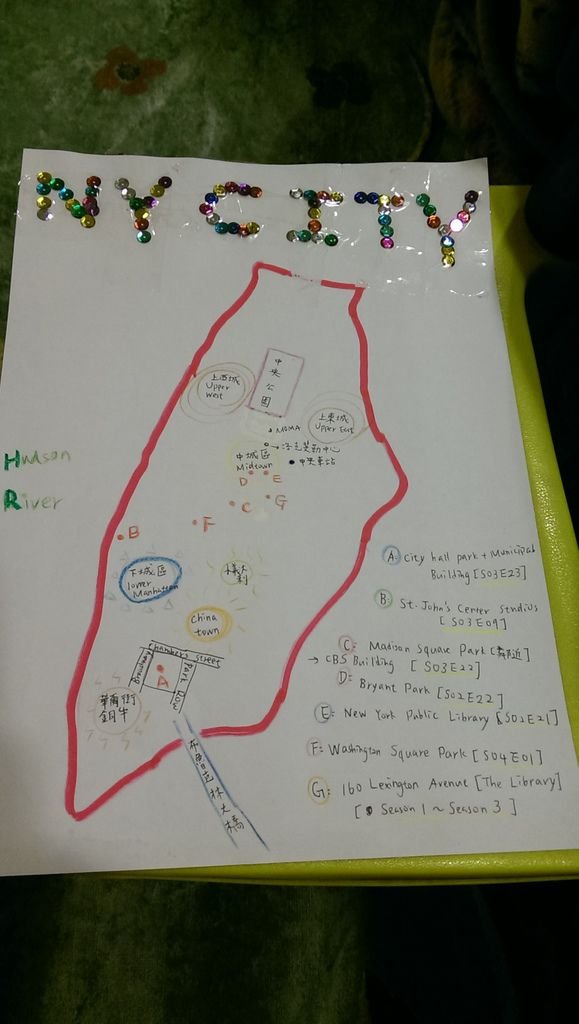 NY CITY
上西城
Upper
west
中央公園
上東城
Upper East
MOMA
→洛克斐勒中心
中城區
Midtown
中央車站
D
E
C
G
F
B
Hudson
River
下城區
lower
Manhattan
China
town
Chambers Street
Broadway
Park Row
A
華爾街
銅牛
布魯克林大橋
A: City hall park + Municipal
Building [S03E23]
B: St. John's Center Studios
[S03E09]
C: Madison Square Park [附近]
→ CBS Building [S03E22]
D: Bryant Park [S02E22]
E: New York Public Library [S02E21]
F: Washington Square Park [S04E01]
G: 160 Lexington Avenue [The Library]
[Season 1 ~ Season 3]